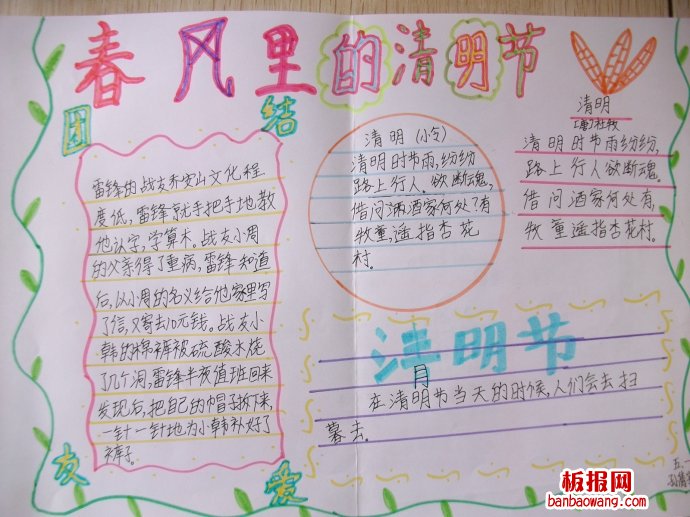 春风里的清明节
团结
雷锋的战友乔安山文化程
度低,雷锋就手把手地教
他认字,学算术。战友小周
的父亲得了重病,雷锋知道
后,以小周的名义给他家里写
了信,又寄去10元钱。战友小
韩的棉裤被硫酸水烧
了几个洞,雷锋半夜值班回来
发现后,把自己的帽子拆下来,
一针一针地为小韩补好了
裤子。
友爱
清明(小令)
清明时节雨,纷纷
路上行人,欲断魂,
借问酒家何处?有
牧童,遥指杏花
村。
清明
[唐]杜牧
清明时节雨纷纷,
路上行人欲断魂。
借问酒家何处有,
牧童遥指杏花村。
清明节
在清明节当天的时候,人们会去扫
墓去。
五、一
板报网
banbaowang.com